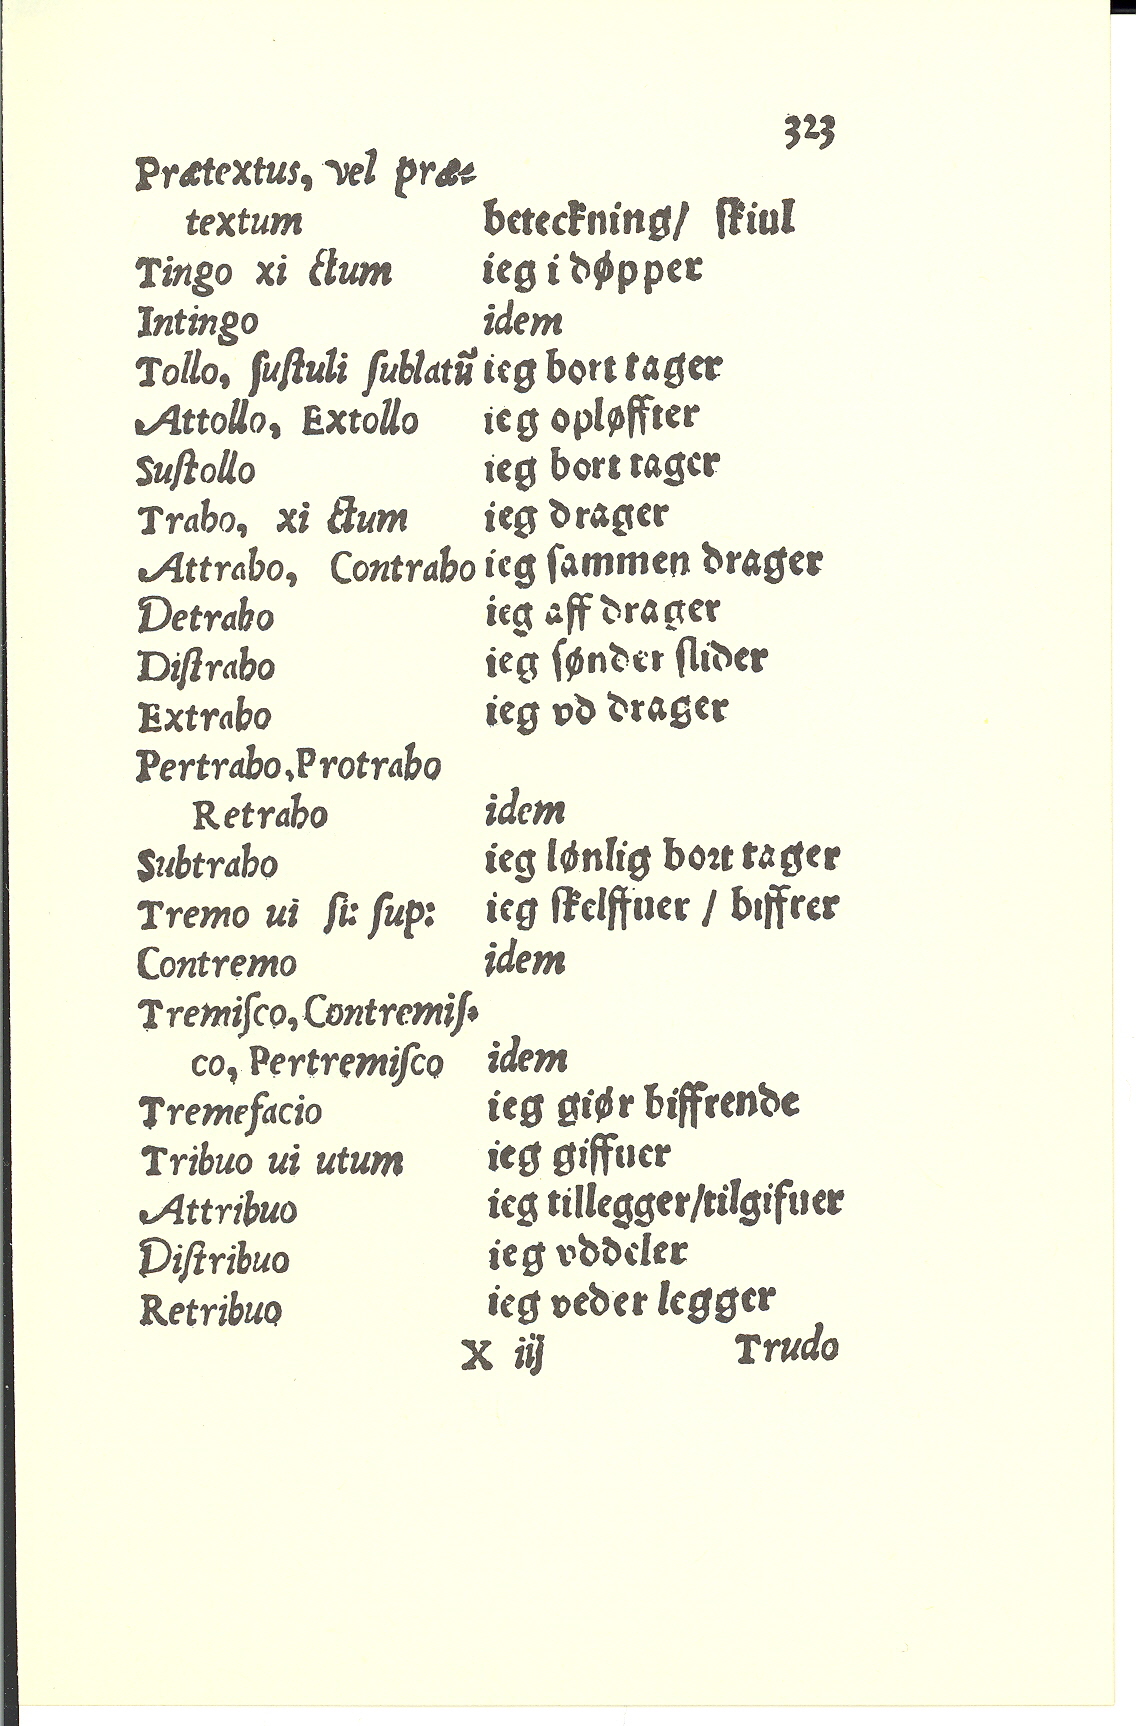 323
Prætextus, vel præ-
textum beteckning/ ſkiul
Tingo xi ctum ieg i døpper
Intingo idem
Tollo, ſuſtuli ſublatũ ieg bort tager
Attollo, Extollo ieg opløffter
Suſtollo ieg bort tager
Traho, xi ctum ieg drager
Attraho, Contraho ieg ſammen drager
Detraho ieg aff drager
Diſtraho ieg ſønder ſlider
Extraho ieg vd drager
Pertraho, Protraho
Retraho idem
Subtraho ieg lønlig bort tager
Tremo ui ſi: ſup: ieg ſkelffuer / biffrer
Contremo idem
Tremiſco, Contremiſ-
co, Pertremiſco idem
Tremefacio ieg giør biffrende
Tribuo ui utum ieg giffuer
Attribuo ieg tillegger/tilgifuer
Diſtribuo ieg vddeler
Retribuo ieg veder legger
X iij Trudo